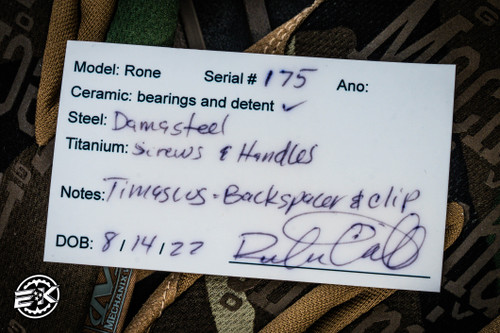 Model: Rone Serial # 175 Ano:
Ceramic: bearings and detent ✓
Steel: Damasteel
Titanium: Screws & Handles
Notes: Timascus - Backspacer & clip
DOB: 8 / 14 / 22
MECHANIX